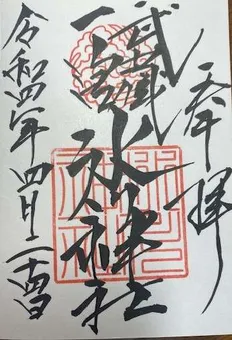 奉拝
武蔵
一宮
氷川神社
令和四年四月二十四日